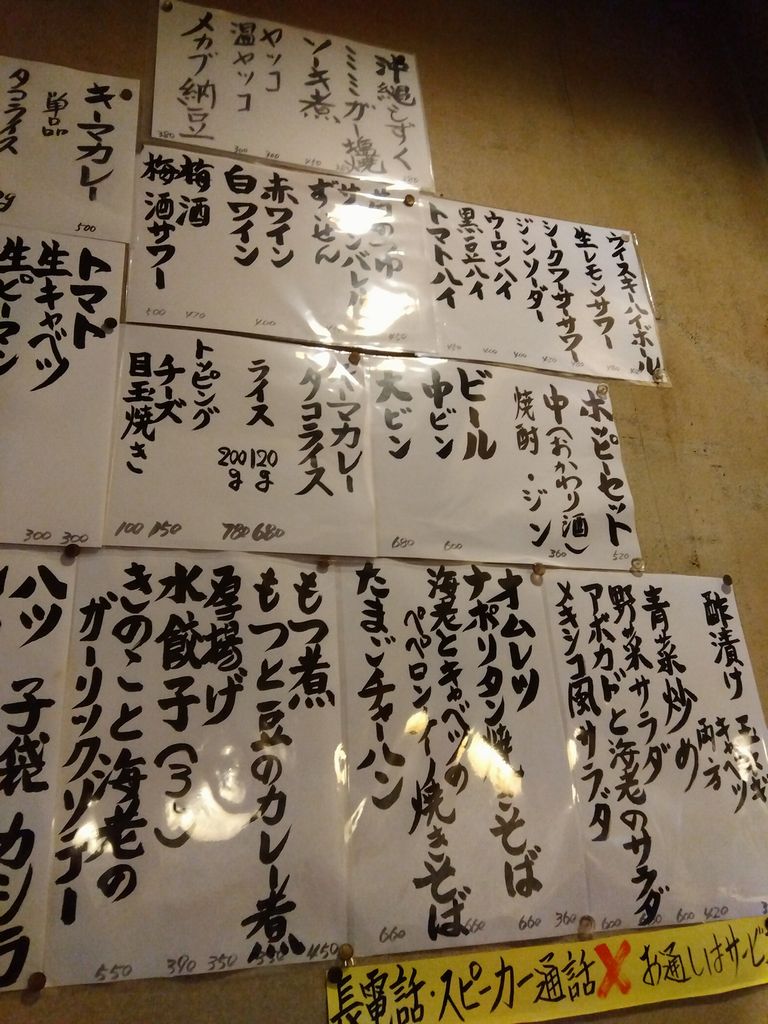 沖縄もずく
ミミガー塩焼
ソーキ煮 450
ヤッコ 300
温ヤッコ 300
メカブ納豆 380
キーマカレー
単品 500
タコライス
ウイスキーハイボール
生レモンサワー 480
シークワーサーサワー 480
ジンソーダー 450
ウーロンハイ 400
黒豆ハイ 400
トマトハイ 450
ずいせん
赤ワイン
白ワイン 400
梅酒 470
梅酒サワー 500
トマト 300
生キャベツ 300
生ピーマン
キーマカレー
タコライス
ライス 120g 680
200g 780
トッピング
チーズ 150
目玉焼き 100
ホッピーセット 520
中(おかわり酒) 360
焼酎・ジン
ビール
中ビン 600
大ビン 680
酢漬け
キャベツ
両方
青菜炒め 420
野菜サラダ 600
アボカドと海老のサラダ
メキシコ風サラダ 600
オムレツ 360
ナポリタン焼きそば 660
海老とキャベツの
ペペロンチーノ焼きそば 660
たまごチャーハン 660
もつ煮 450
もつと豆のカレー煮
厚揚げ 350
水餃子(3コ) 390
きのこと海老の
ガーリックソテー 550
ハツ 子袋 カシラ
長電話・スピーカー通話 X お通しはサービ